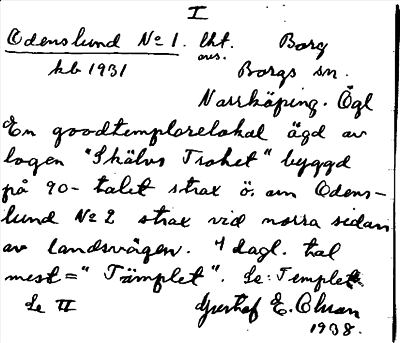 I
Odenslund No 1. lht. Borg
ous.
kb 1931 Borgs sn.
Norrköping. Ögl
En goodtemplarelokal ägd av
logen "Skälvs Trohet" byggd
på 90-talet strax ö. om Odens-
lund No 2 strax vid norra sidan
av landsvägen. I dagl. tal
mest = "Tämplet". Se: Templet
Se II Gustaf E. Olsson
1938.